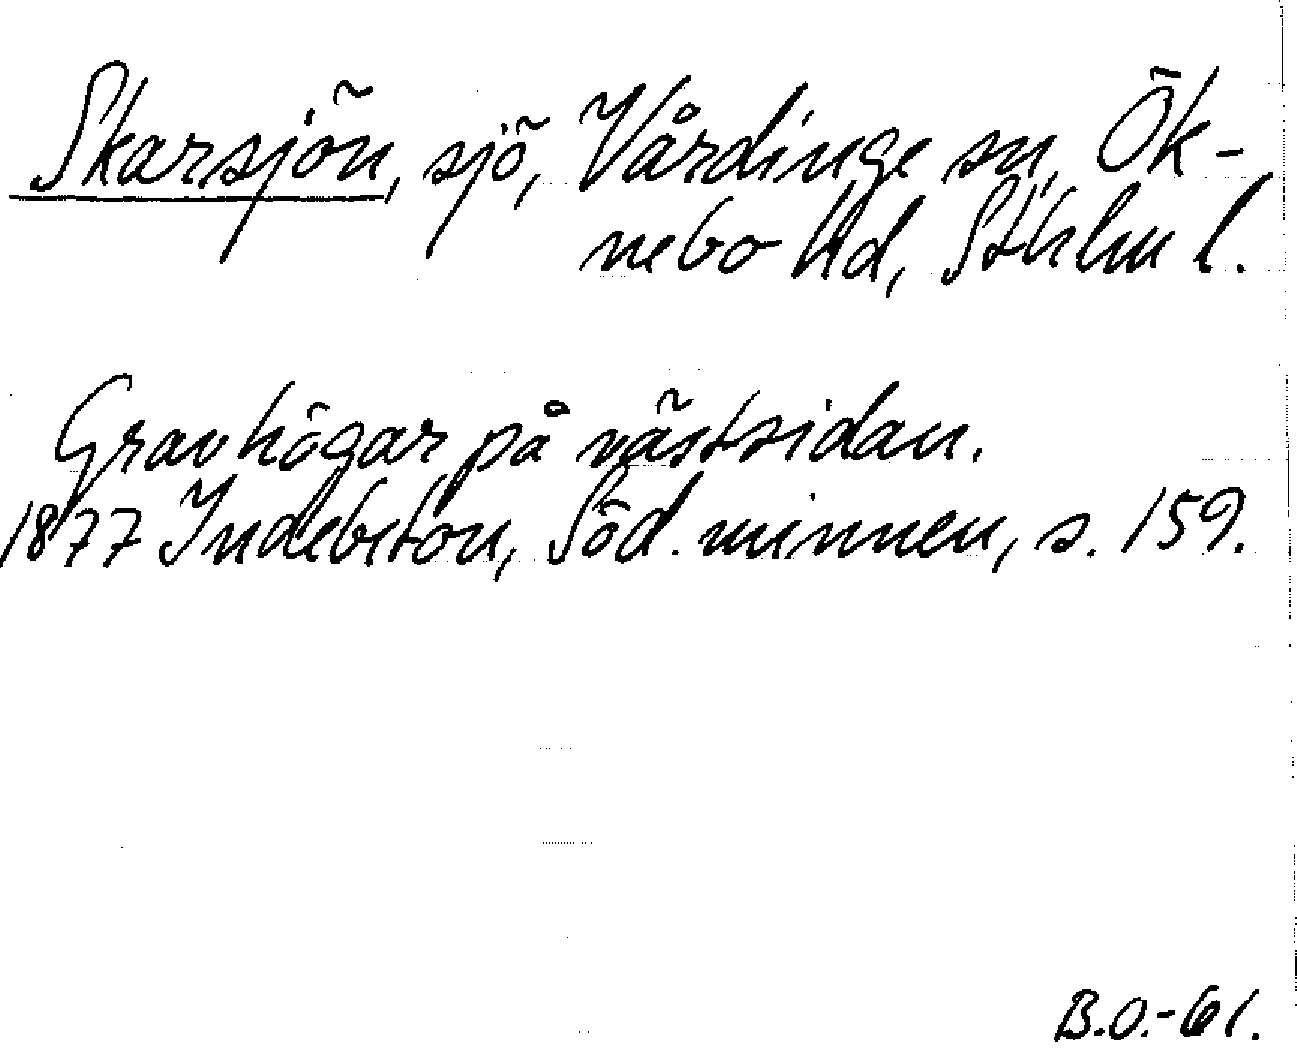 Skarsjön, sjö, Vårdinge sn, Ök-
nebo hd, Sthlm l.
Gravhögar på västsidan.
1877 Indebetou, Söd. minnen, s. 159.
B.O.-61.